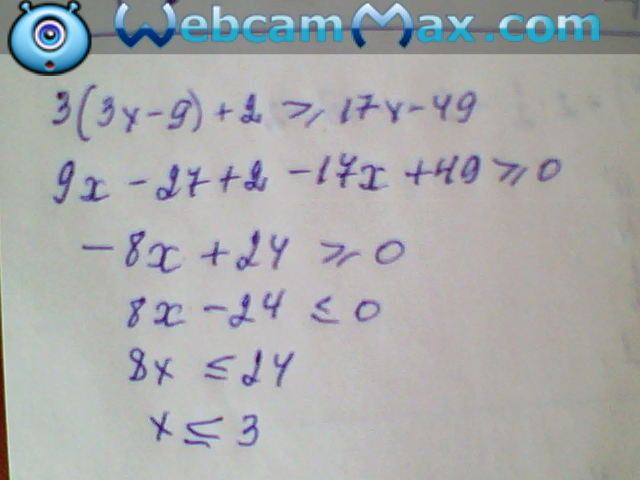 WebcamMax.com
3(3x-9)+2 ≥ 17x-49
9x - 27+2 - 17x +49 ≥ 0
-8x + 24 ≥ 0
8x - 24 ≤ 0
8x ≤ 24
x ≤ 3